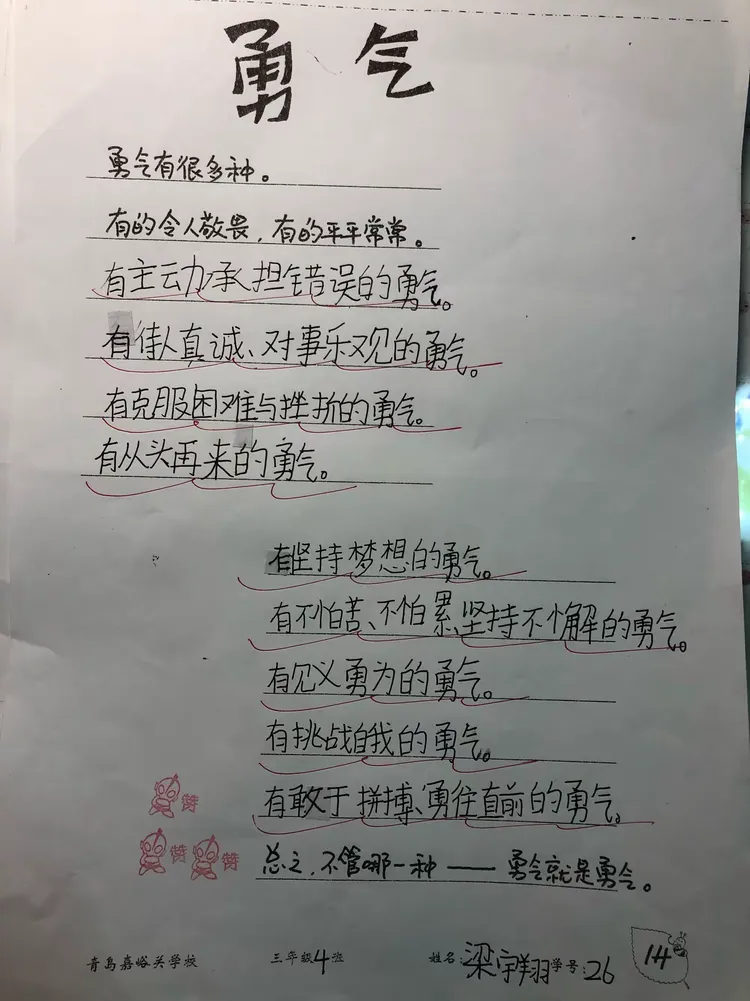 勇气
勇气有很多种。
有的令人敬畏，有的平平常常。
有主动力承担错误的勇气。
有待人真诚、对事乐观的勇气。
有克服困难与挫折的勇气。
有从头再来的勇气。
有坚持梦想的勇气。
有不怕苦、不怕累坚持不懈的勇气。
有见义勇为的勇气。
有挑战自我的勇气。
有敢于拼搏、勇往直前的勇气。
赞
赞 赞
总之，不管哪一种——勇气就是勇气。
青岛嘉峪关学校 三年级4班 姓名：梁宇翔 学号：26
14